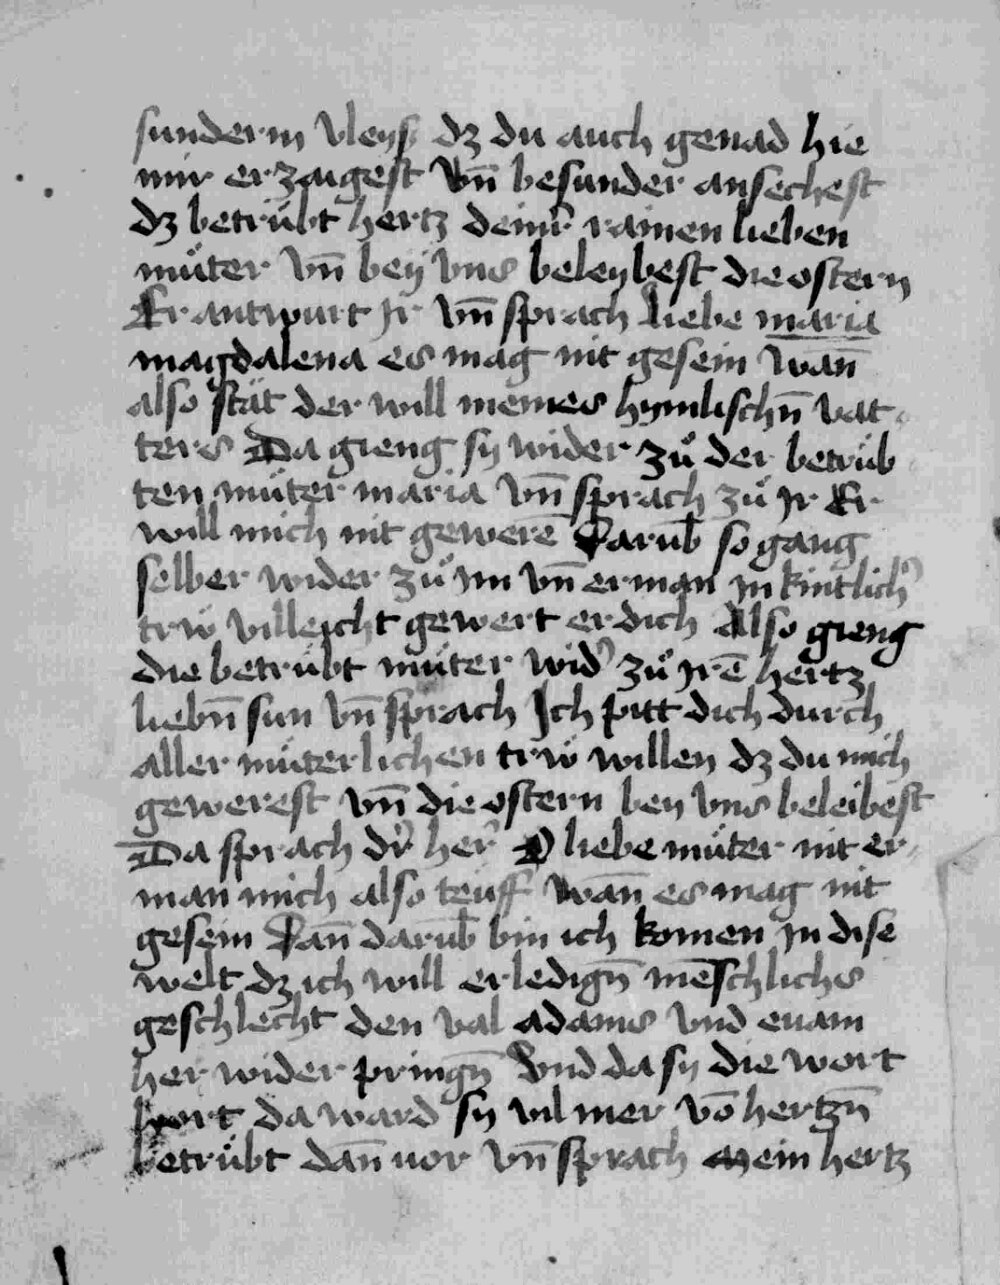 sunderm vleys dz du auch genad hie
mir erzaigest Vn̄ besunder ansechest
dz betrübt hertz deinr̄ rainen lieben
müter vn̄ beÿ vns beleybest die ostern
Er antwurt Jr vn̄ sprach liebe maria
magdalena es mag nit gesein wan̄
also stät der will meines hymlischn̄ vat
ters Da gieng sy wider zů der betrüb
ten müter maria vn̄ sprach zů Jr Er
will mich nit gewerē Darub̄ so gang
selber wider zů im vn̄ erman Jn kintlich᾽
trẅ villeicht gewert er dich Also gieng
die betrübt müter wid᾽ zů Jrē hertz
liebn̄ sun vn̄ sprach Ich pitt dich durch
aller müterlichen trẅ willen dz du mich
gewerest vn̄ die ostern bey vns beleibest
Da sprach dr᾽ her᾽ O liebe müter nit er
man mich also teüff wan̄ es mag nit
gesein Dan̄ darub̄ bin ich komen Jn dise
welt dz ich will erledign̄ mēschlichs
geschlecht den val adams vnd euam
her wider pringn̄ Vnd da sy die wort
hort da ward sy vil mer vō hertzn̄
betrübt dan̄ vor vn̄ sprach Mein hertz